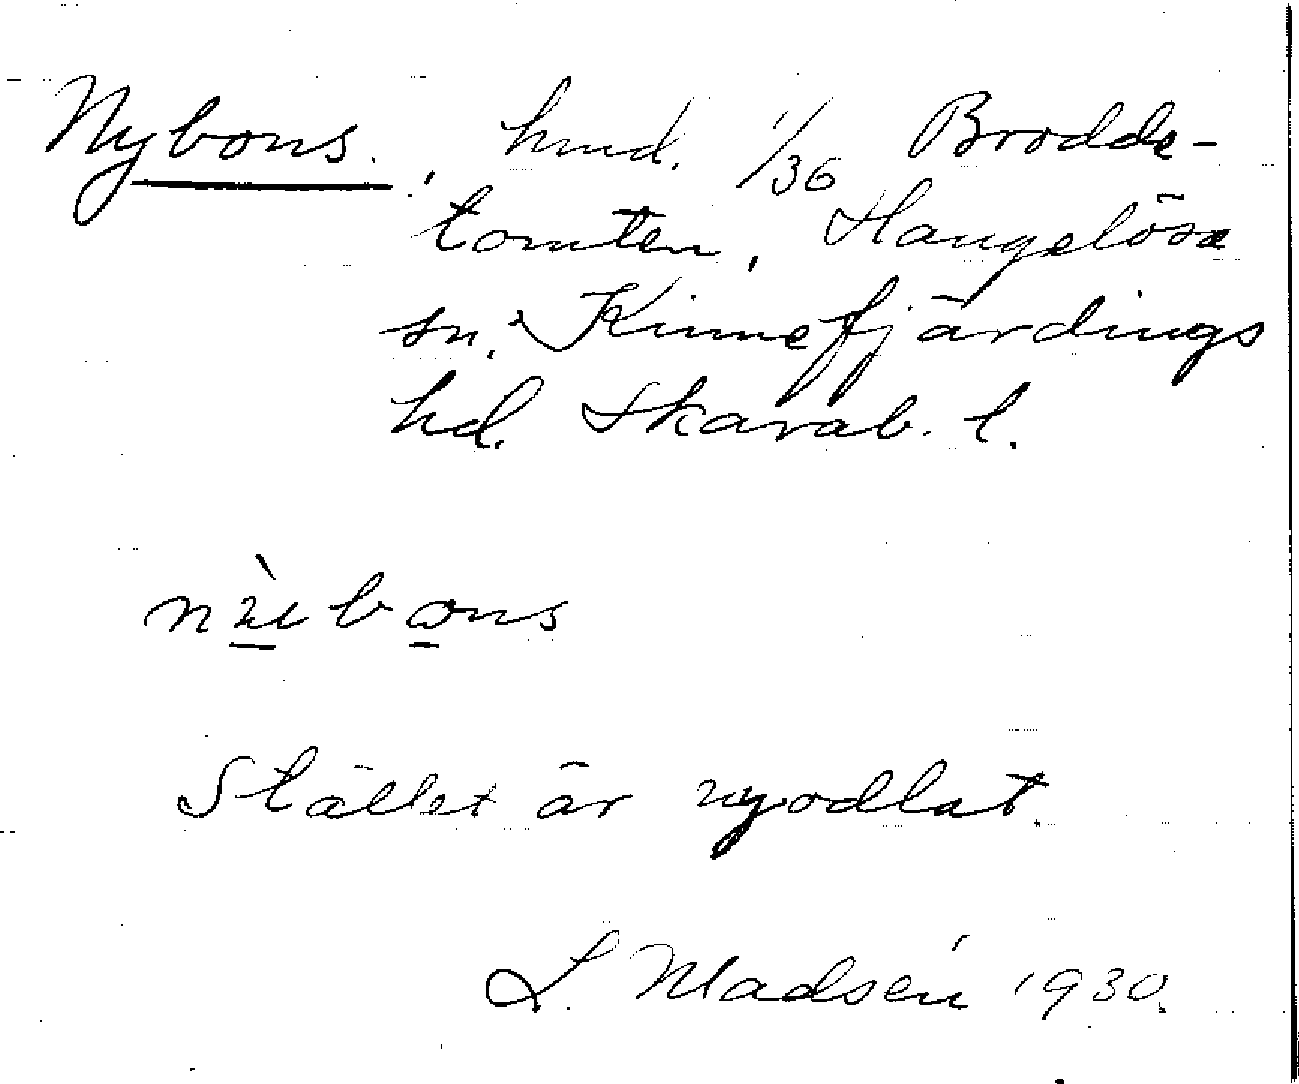 Nybons., hmd. 1/36 Brodde-
tomten, Hangelösa
sn. Kinnefjärdings
hd. Skarab. l.
Stället är nyodlat.
L. Madsén 1930.